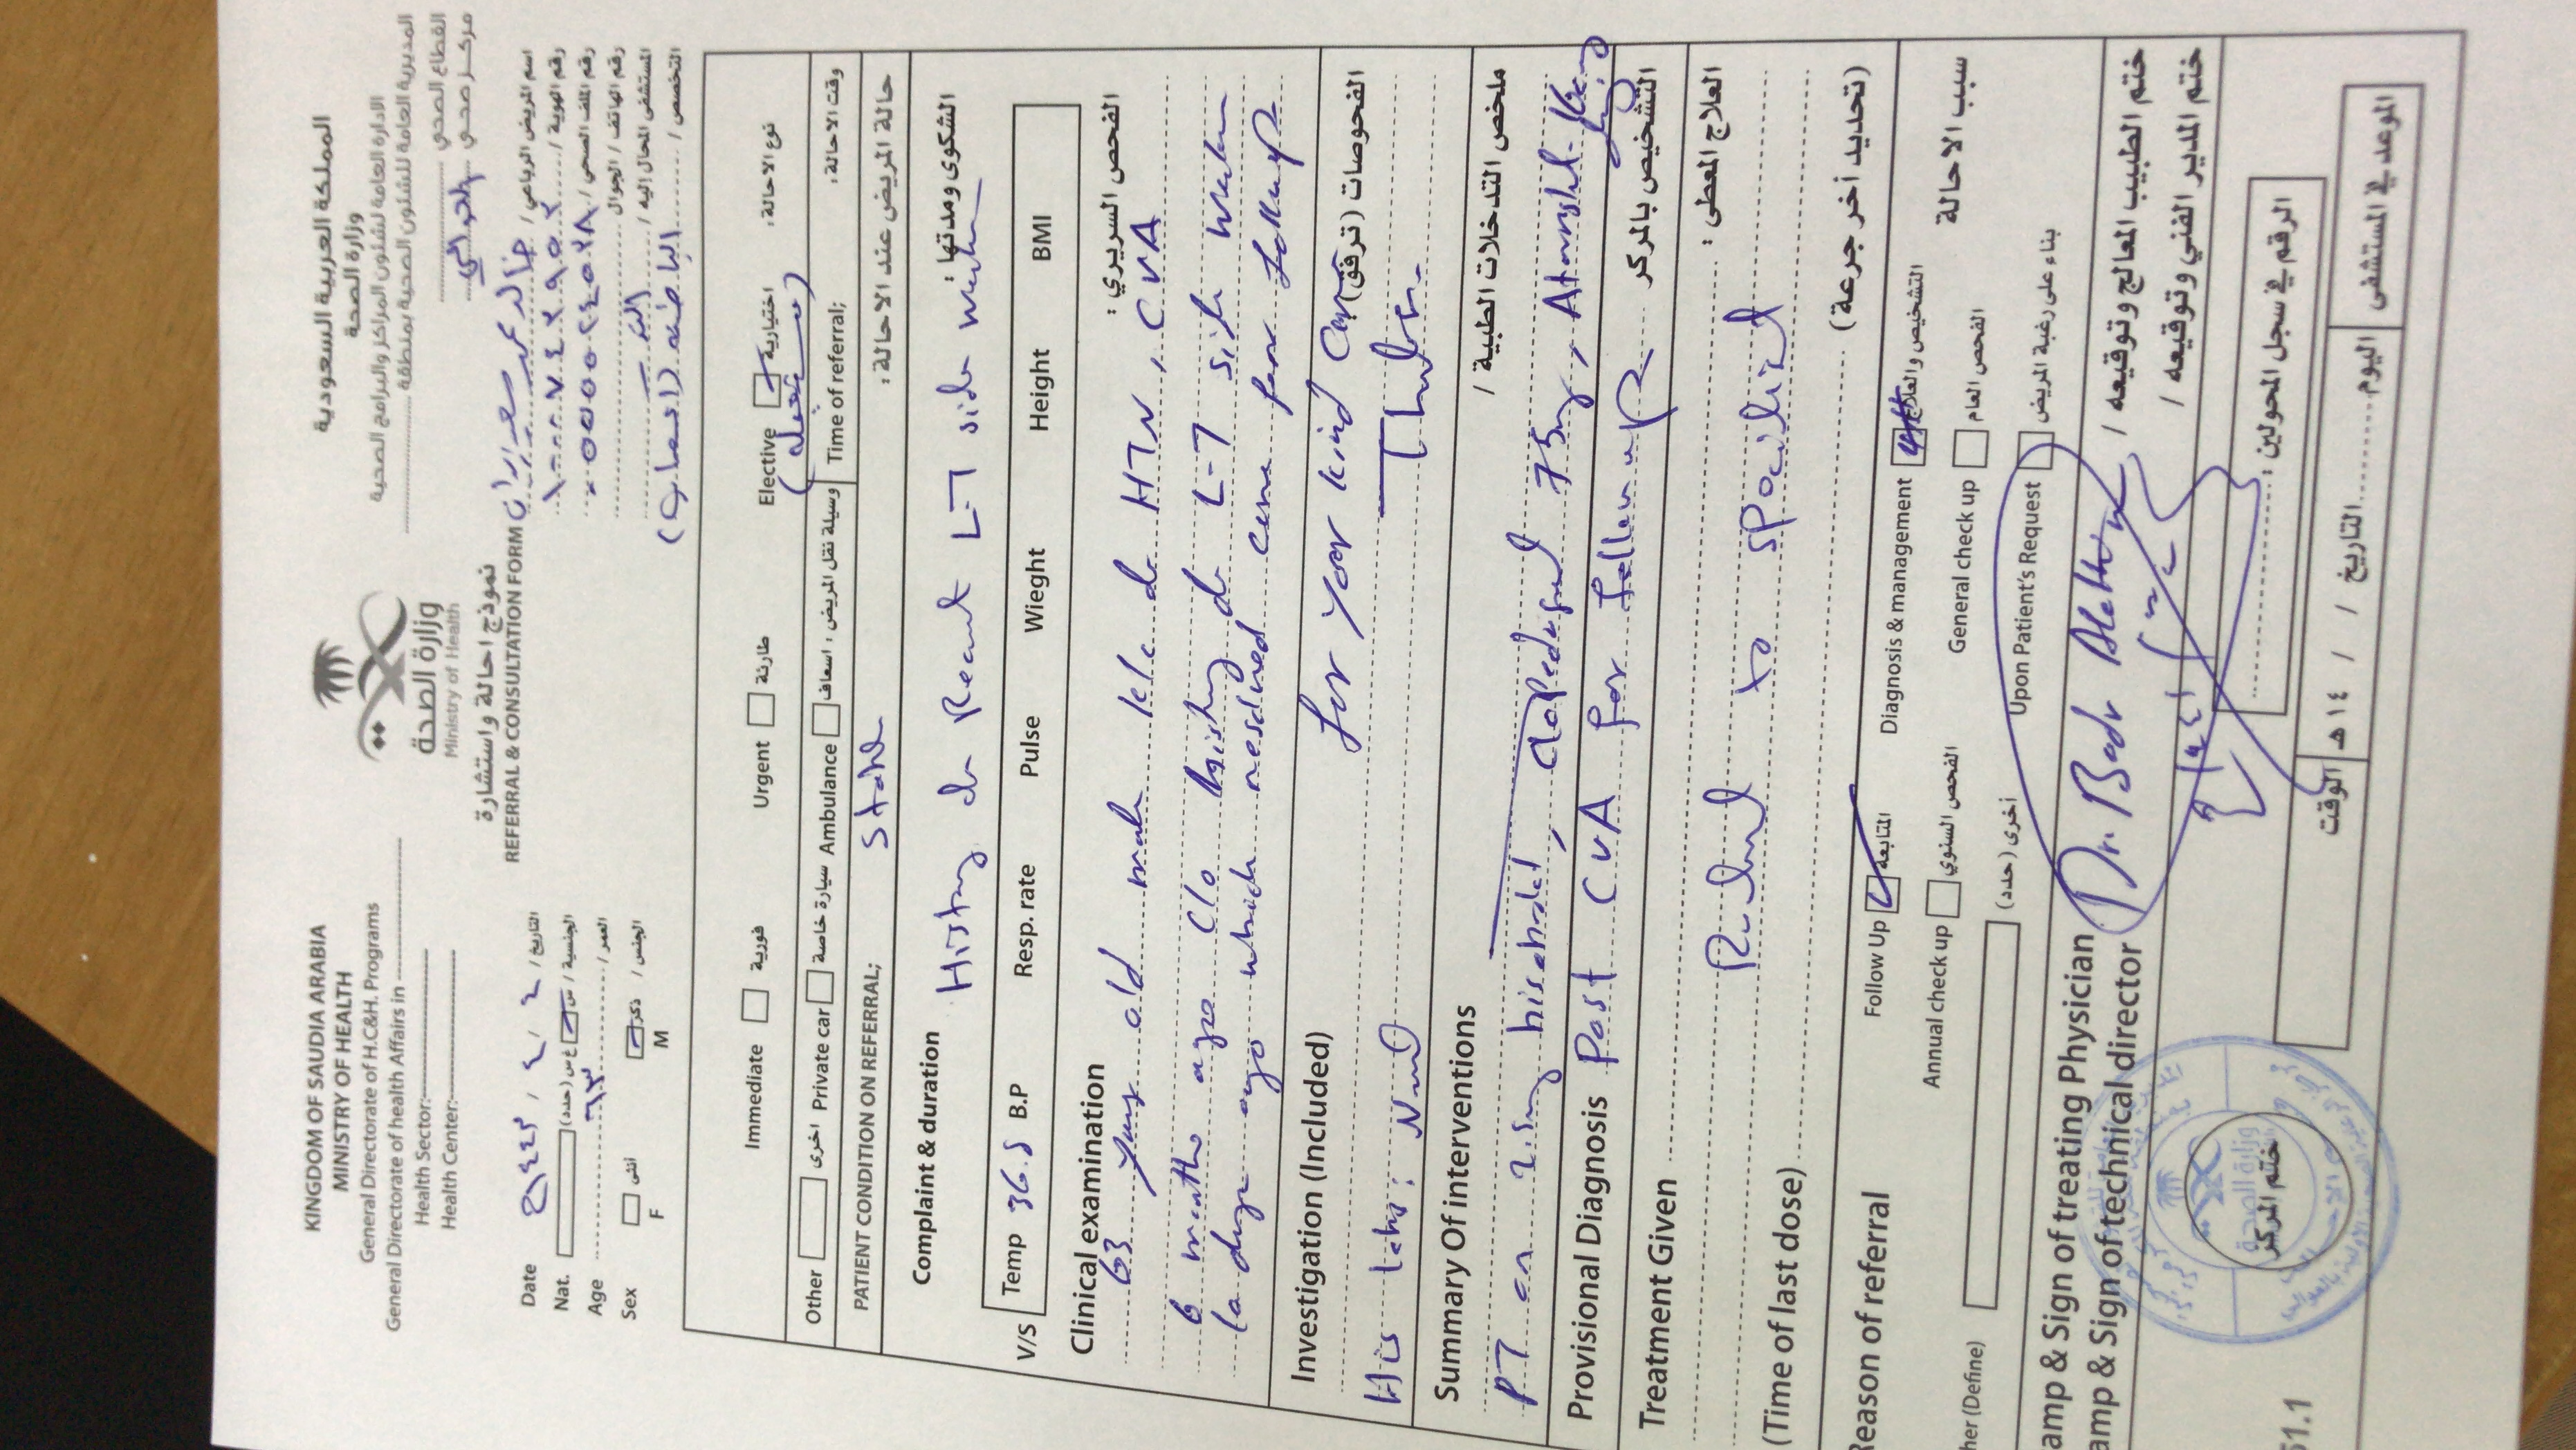 KINGDOM OF SAUDIA ARABIA
MINISTRY OF HEALTH
General Directorate of H.C&H. Programs
General Directorate of health Affairs in
Health Sector:
Health Center:
وزارة الصحة
Ministry of Health
المملكة العربية السعودية
وزارة الصحة
الادارة العامة لشئون المراكز والبرامج الصحية
المديرية العامة للشئون الصحية بمنطقة
القطاع الصحي
مركز صحي العوالي
نموذج احالة واستشارة
REFERRAL & CONSULTATION FORM
اسم المريض الرباعي / خالد محمد سعيد
رقم الهوية / ١٠٠٠٧٤٣٩٥٢
رقم الملف الصحي /
رقم الهاتف / الجوال
المستشفى المحال إليه / النور
التخصص / الباطنه (اعصاب)
Date ١٤٤٣ / ٤ / ٢ التاريخ /
Nat. الجنسية / س غ س (حدد)
Age ٦٣ العمر /
Sex أنثى ذكر الجنس /
F M
Immediate فورية Urgent طارئة Elective اختيارية نوع الاحالة:
(مستعجله)
Other اخرى Private car سيارة خاصة Ambulance وسيلة نقل المريض : اسعاف Time of referral; وقت الاحالة:
PATIENT CONDITION ON REFERRAL; Stable حالة المريض عند الاحالة:
Complaint & duration الشكوى ومدتها :
History of Recent LT side weakness
V/S Temp 36.5 B.P Resp. rate Pulse Wieght Height BMI
Clinical examination الفحص السريري :
63 years old male k/c of HTN, CVA
6 months ago c/o history of LT side weakness
10 days ago which resolved came for follow up
Investigation (Included) for your kind care الفحوصات (ترفق)
His labs: Thanks
Summary Of interventions ملخص التدخلات الطبية /
PT on 2.5mg bisoprolol, clopedogrel 75mg,
Provisional Diagnosis Post CVA for follow up التشخيص بالمركز
Treatment Given العلاج المعطى :
Referral to specialist
(Time of last dose) (تحديد أخر جرعة)
Reason of referral Follow Up المتابعة Diagnosis & management التشخيص والعلاج
سبب الاحالة
Annual check up الفحص السنوي General check up الفحص العام
her (Define) أخرى (حدد)
Upon Patient's Request بناء على رغبة المريض
amp & Sign of treating Physician Dr. Badr ختم الطبيب المعالج وتوقيعه /
amp & Sign of technical director ختم المدير الفني وتوقيعه /
وزارة الصحة
ختم المركز
الرقم في سجل المحولين :
51.1
الموعد في المستشفى اليوم التاريخ / / ١٤ هـ الوقت